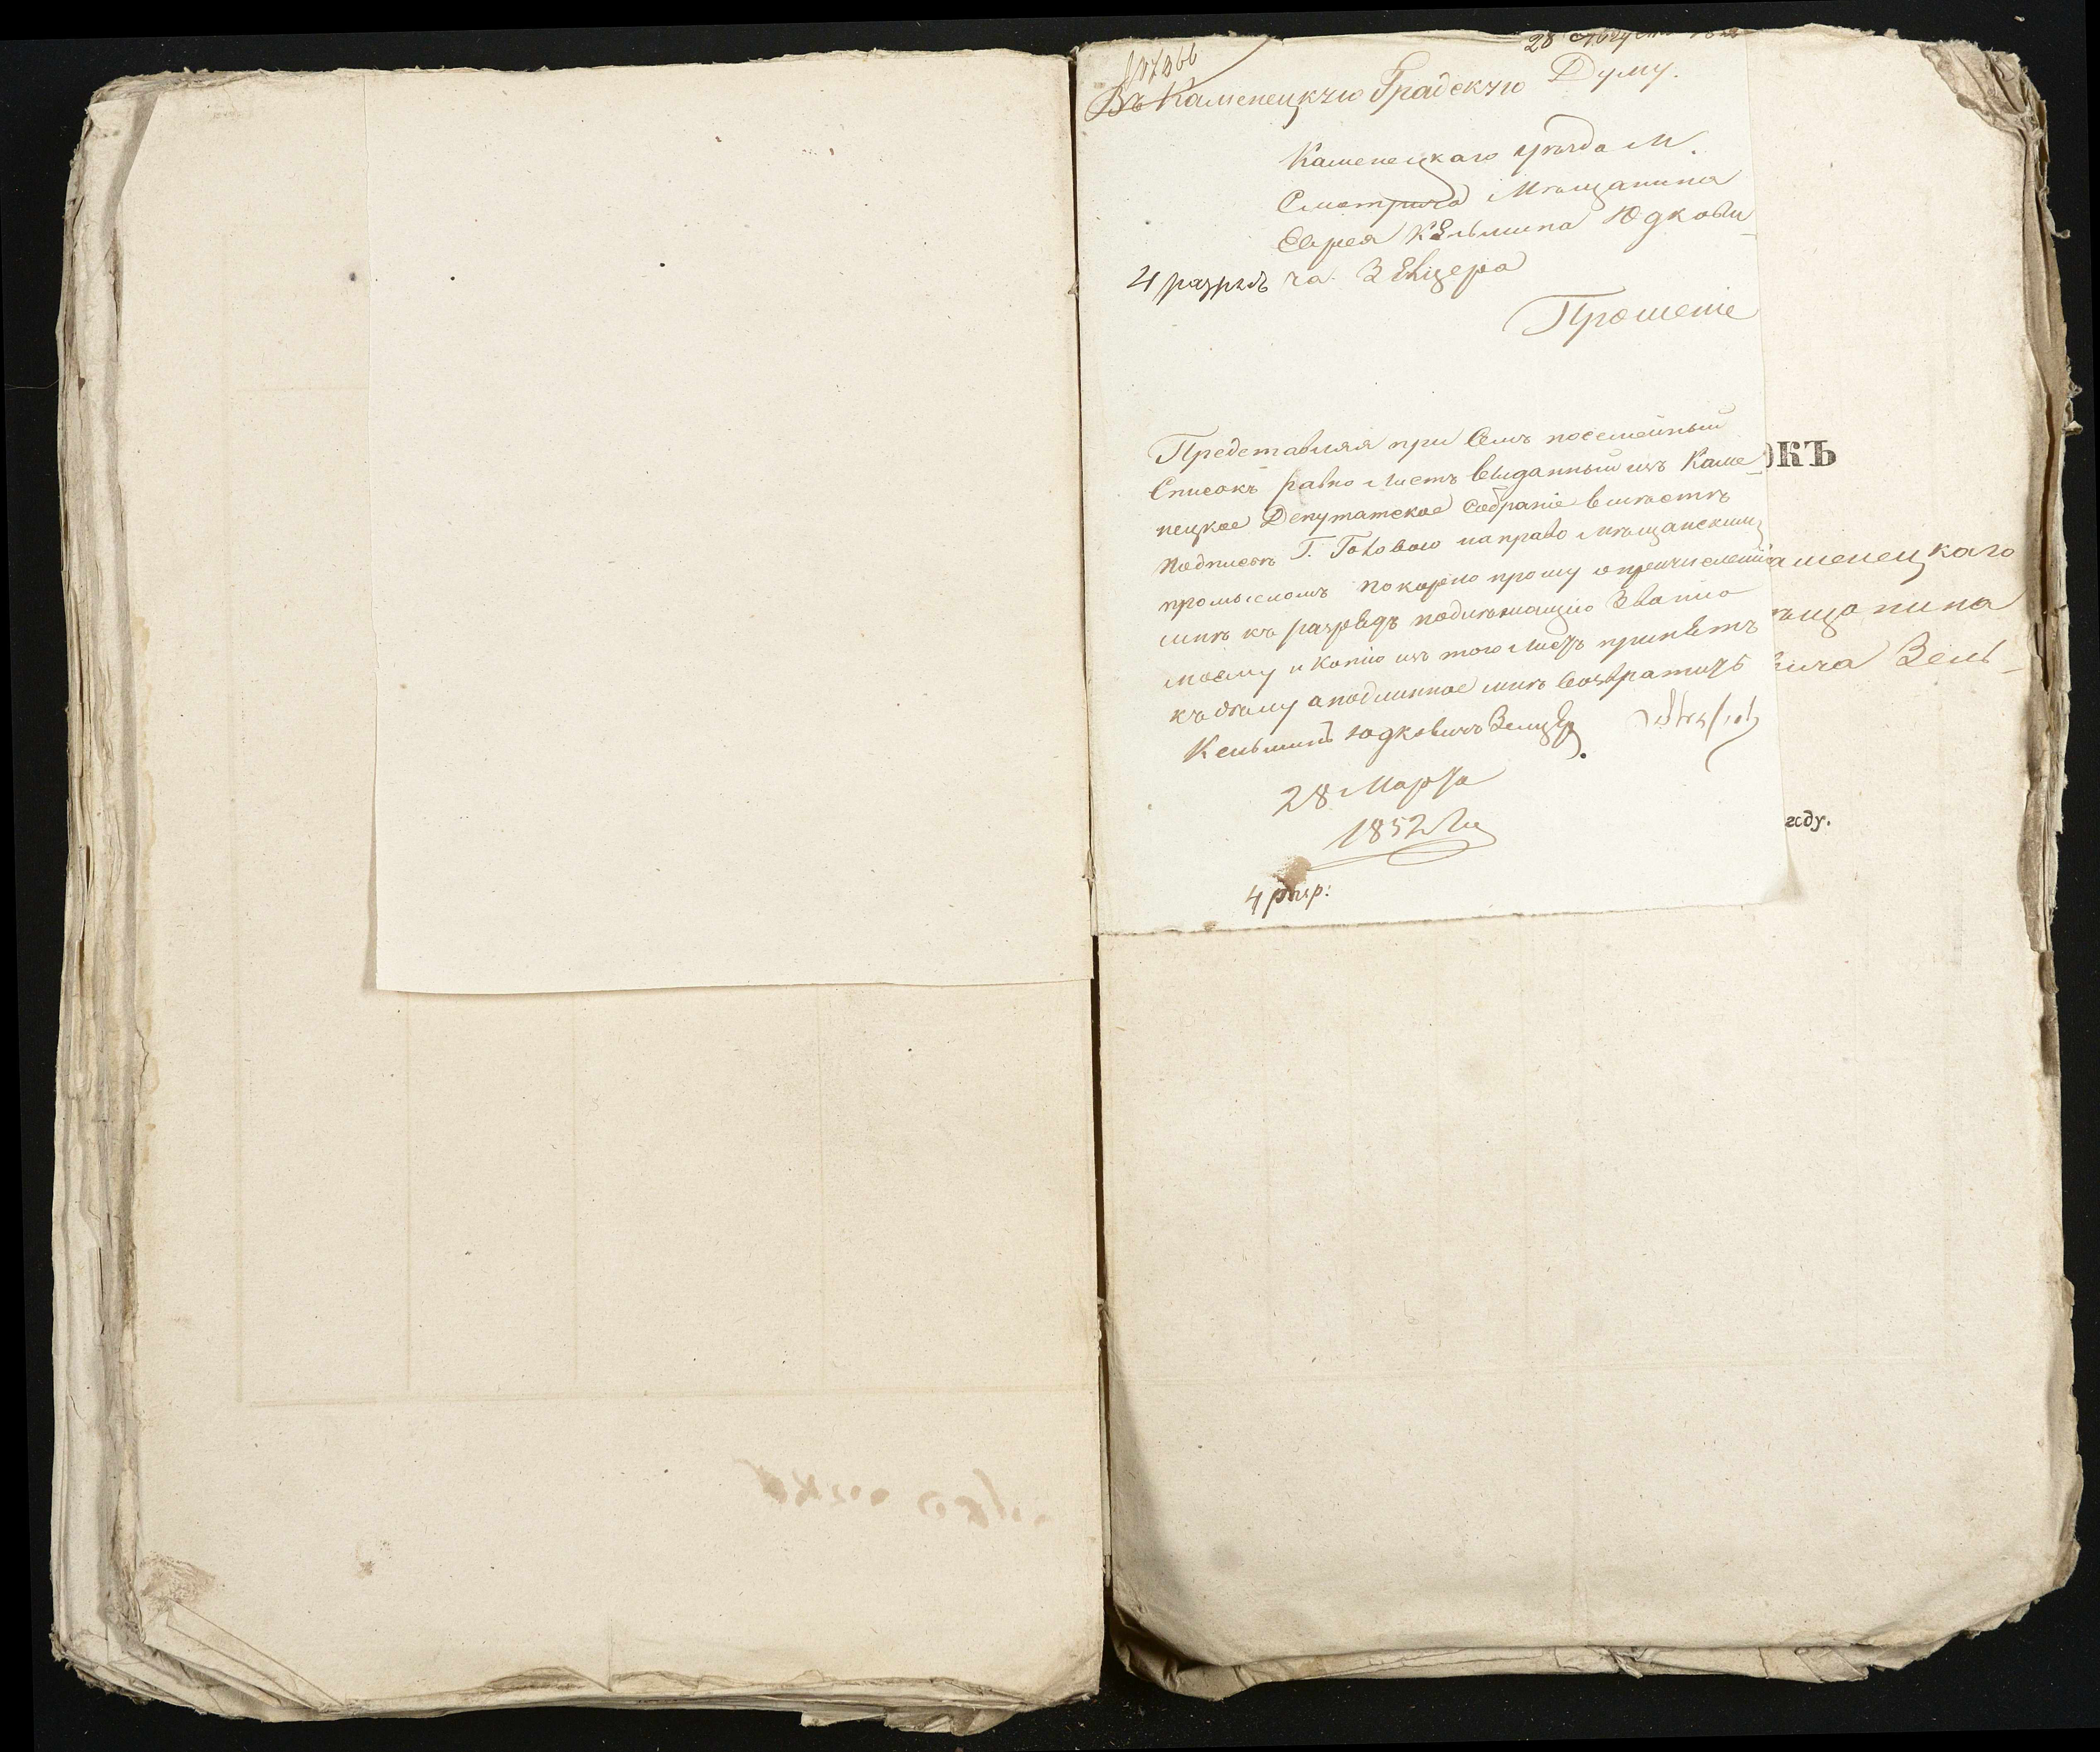 28 Августа
Въ Каменецкую Градскую Думу.
Каменецкаго уѣзда М.
Смотрича Мѣщанина
Еврея Кельмина Юдкови-
4 разрядъ ча Зельцера
Прошеніе
Представляя при Семъ посемейный
Списокъ равно Листъ выданный изъ Каме-
нецкое Депутатское Собраніе вмѣстѣ
Подписомъ Г. на право мѣщанским
промысломъ покорно прошу о причисленіи
мнѣ къ разрядъ подлежащію Званію
моему и Копію изъ того Листъ
къ дѣлу а подлинное мнѣ возвратить
Кельминъ Юдковичъ Зельцер.
28 Марта
1852
4 разр:
ОКЪ
аменецкаго
ѣщанина
вича Зель-
году.